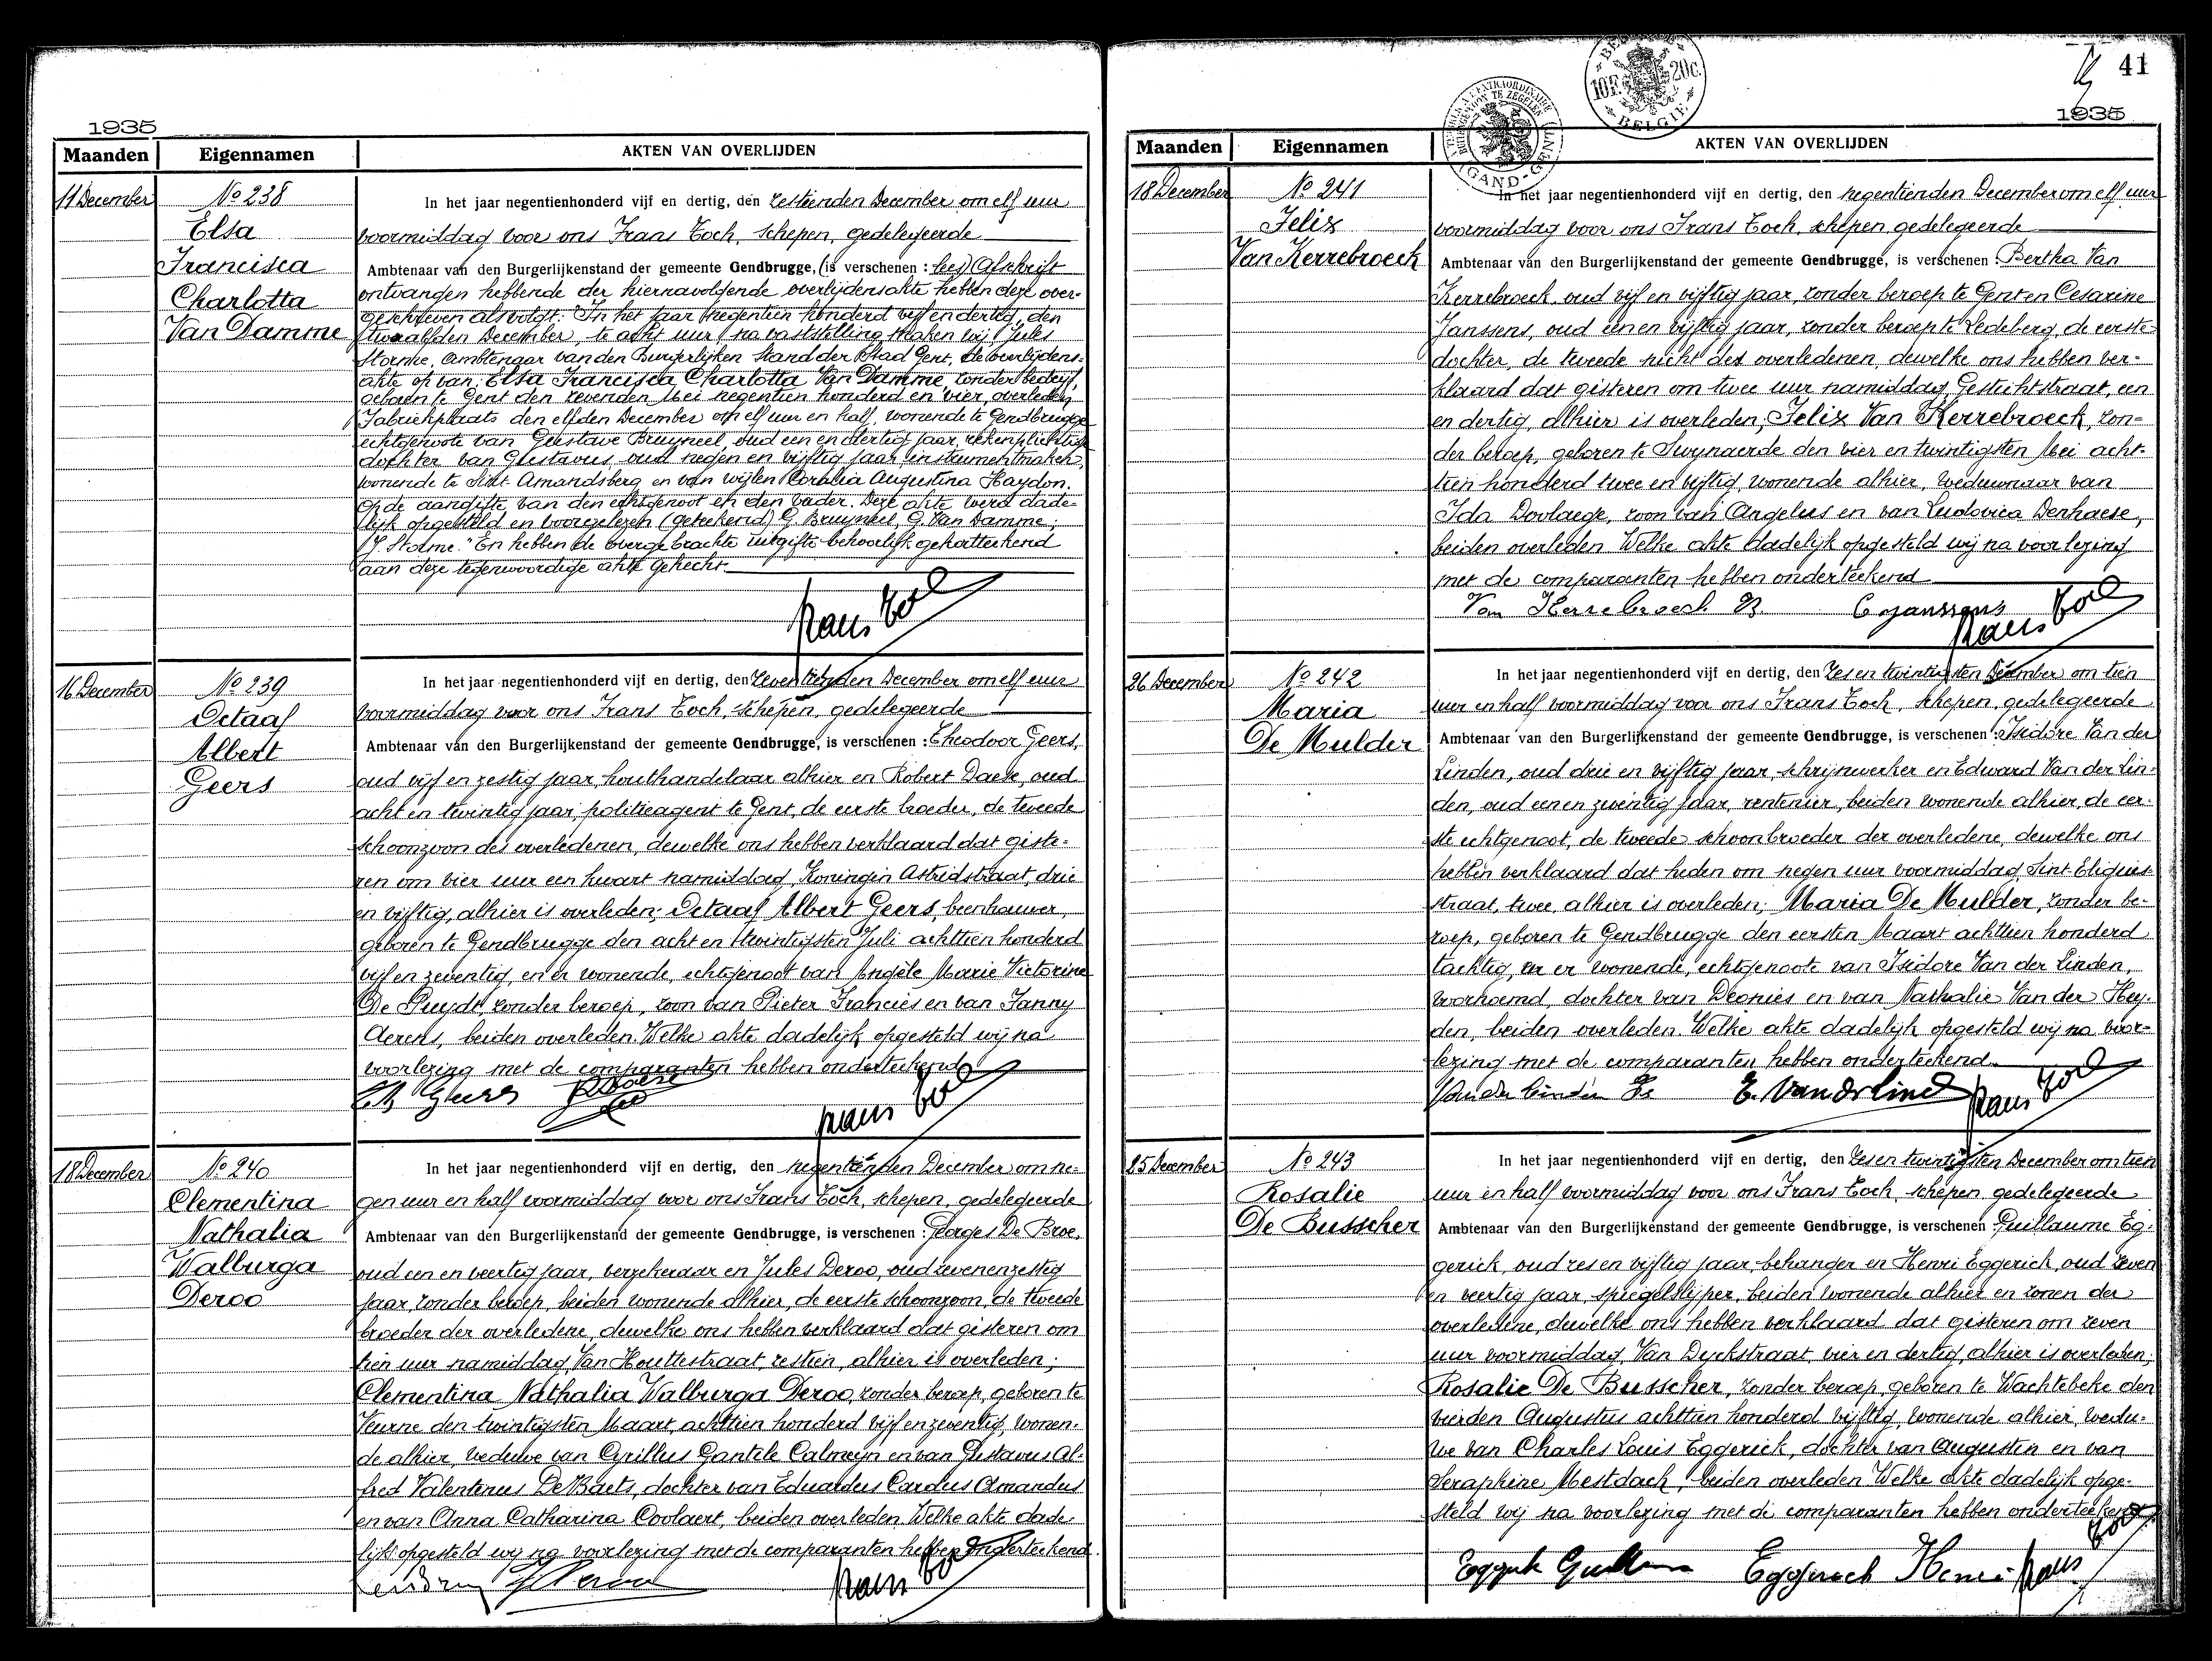 1935
Maanden
Eigennamen
AKTEN VAN OVERLIJDEN
11 December
No 238
Elsa
Francisca
Charlotta
Van Damme
In het jaar negentienhonderd vijf en dertig, den zestienden December om elf uur
voormiddag voor ons Frans Toch, schepen, gedelegeerde
Ambtenaar van den Burgerlijkenstand der gemeente Gendbrugge, (is verschenen : lees) Afschrift
ontvangen hebbende der hiernavolgende overlijdensakte hebben deze over-
geschreven als volgt: "In het jaar negentien honderd vijf en dertig, den
twaalfden December, te acht uur, na vaststelling maken wij Jules
Storme, Ambtenaar van den Burgerlijken Stand der Stad Gent, de overlijdens-
akte op van: Elsa Francisca Charlotta Van Damme, zonder bedrijf,
geboren te Gent den zevenden Mei negentien honderd en vier, overleden
Fabriekplaats den elfden December om elf uur en half, wonende te Gendbrugge
echtgenoote van Gustave Bruyneel, oud een en dertig jaar, rekenplichtige
dochter van Gustavus, oud negen en vijftig jaar, instrumentmaker,
wonende te Sint Amandsberg en van wijlen Coralia Augustina Haydon.
Op de aangifte van den echtgenoot en den vader. Deze akte werd dade-
lijk opgesteld en voorgelezen (geteekend) G. Bruyneel, G. Van Damme;
J. Storme." En hebben de overgebrachte uitgifte behoorlijk gekortteekend
aan deze tegenwoordige akte gehecht.
Frans Toch
16 December
No 239
Octaaf
Albert
Geers
In het jaar negentienhonderd vijf en dertig, den zeventienden December om elf uur
voormiddag voor ons Frans Toch, schepen, gedelegeerde
Ambtenaar van den Burgerlijkenstand der gemeente Gendbrugge, is verschenen : Theodoor Geers,
oud vijf en zestig jaar, houthandelaar alhier en Robert Daese, oud
acht en twintig jaar, politieagent te Gent, de eerste broeder, de tweede
schoonzoon des overledenen, dewelke ons hebben verklaard dat giste-
ren om vier uur een kwart namiddag, Koningin Astridstraat, drie
en vijftig, alhier is overleden; Octaaf Albert Geers, beenhouwer,
geboren te Gendbrugge den acht en twintigsten Juli achttien honderd
vijf en zeventig, en er wonende, echtgenoot van Angèle Marie Victorine
De Puydt, zonder beroep, zoon van Pieter Francies en van Fanny
Aerens, beiden overleden. Welke akte dadelijk opgesteld wij na
voorlezing met de comparanten hebben onderteekend
Th Geers
R Daese
Frans Toch
18 December
No 240
Clementina
Nathalia
Walburga
Deroo
In het jaar negentienhonderd vijf en dertig, den negentienden December om ne-
gen uur en half voormiddag voor ons Frans Toch, schepen, gedelegeerde
Ambtenaar van den Burgerlijkenstand der gemeente Gendbrugge, is verschenen : Georges De Broe,
oud een en veertig jaar, verzekeraar en Jules Deroo, oud zeven en zestig
jaar, zonder beroep, beiden wonende alhier, de eerste schoonzoon, de tweede
broeder der overledene, dewelke ons hebben verklaard dat gisteren om
tien uur namiddag, Van Houttestraat, zestien, alhier is overleden;
Clementina Nathalia Walburga Deroo, zonder beroep, geboren te
Veurne den twintigsten Maart, achttien honderd vijf en zeventig, wonen-
de alhier, weduwe van Cyrillus Calmeyn en van Gustavus Al-
fred Valentinus De Baets, dochter van Eduardus Carolus Amandus
en van Anna Catharina Coolaert, beiden overleden. Welke akte dade-
lijk opgesteld wij na voorlezing met de comparanten hebben onderteekend.
J Deroo
Frans Toch
41
1935
10F. 20c.
BELGIE
GAND-GENT
Maanden
Eigennamen
AKTEN VAN OVERLIJDEN
18 December
No 241
Felix
Van Kerrebroeck
In het jaar negentienhonderd vijf en dertig, den negentienden December om elf uur
voormiddag voor ons Frans Toch, schepen, gedelegeerde
Ambtenaar van den Burgerlijkenstand der gemeente Gendbrugge, is verschenen : Bertha Van
Kerrebroeck, oud vijf en vijftig jaar, zonder beroep te Gent en Cesarine
Janssens, oud een en vijftig jaar, zonder beroep te Ledeberg, de eerste
dochter, de tweede nicht des overledenen, dewelke ons hebben ver-
klaard dat gisteren om twee uur namiddag, Gestichtstraat, een
en dertig, alhier is overleden; Felix Van Kerrebroeck, zon-
der beroep, geboren te Swynaerde den vier en twintigsten Mei acht-
tien honderd twee en vijftig, wonende alhier, weduwnaar van
Ida Dovlaege, zoon van Angelus en van Ludovica Denhaese,
beiden overleden. Welke akte dadelijk opgesteld wij na voorlezing
met de comparanten hebben onderteekend
Van Kerrebroeck B.
C Janssens
Frans Toch
26 December
No 242
Maria
De Mulder
In het jaar negentienhonderd vijf en dertig, den zes en twintigsten December om tien
uur en half voormiddag voor ons Frans Toch, schepen, gedelegeerde
Ambtenaar van den Burgerlijkenstand der gemeente Gendbrugge, is verschenen : Isidore Van der
Linden, oud drie en vijftig jaar, schrijnwerker en Edward Van der Lin-
den, oud een en zeventig jaar, rentenier, beiden wonende alhier, de eer-
ste echtgenoot, de tweede schoonbroeder der overledene, dewelke ons
hebben verklaard dat heden om negen uur voormiddag, Sint Eligius-
straat, twee, alhier is overleden; Maria De Mulder, zonder be-
roep, geboren te Gendbrugge den eersten Maart achttien honderd
tachtig, en er wonende, echtgenoote van Isidore Van der Linden,
voornoemd, dochter van Deonies en van Nathalie Van der Hey-
den, beiden overleden. Welke akte dadelijk opgesteld wij na voor-
lezing met de comparanten hebben onderteekend.
Vander Linden Is
E. Vanderlind
Frans Toch
25 December
No 243
Rosalie
De Busscher
In het jaar negentienhonderd vijf en dertig, den zes en twintigsten December om tien
uur en half voormiddag voor ons Frans Toch, schepen, gedelegeerde
Ambtenaar van den Burgerlijkenstand der gemeente Gendbrugge, is verschenen : Guillaume Eg-
gerick, oud zes en vijftig jaar, behanger en Henri Eggerick, oud zeven
en veertig jaar, spiegelslijper, beiden wonende alhier en zonen der
overledene, dewelke ons hebben verklaard dat gisteren om zeven
uur voormiddag, Van Dyckstraat, vier en dertig, alhier is overleden;
Rosalie De Busscher, zonder beroep, geboren te Wachtebeke den
vierden Augustus achttien honderd vijftig, wonende alhier, wedu-
we van Charles Louis Eggerick, dochter van Augustin en van
Seraphine Mestdach, beiden overleden. Welke akte dadelijk opge-
steld wij na voorlezing met de comparanten hebben onderteekend
Eggerick Guillaume
Eggerick Henri
Frans Toch